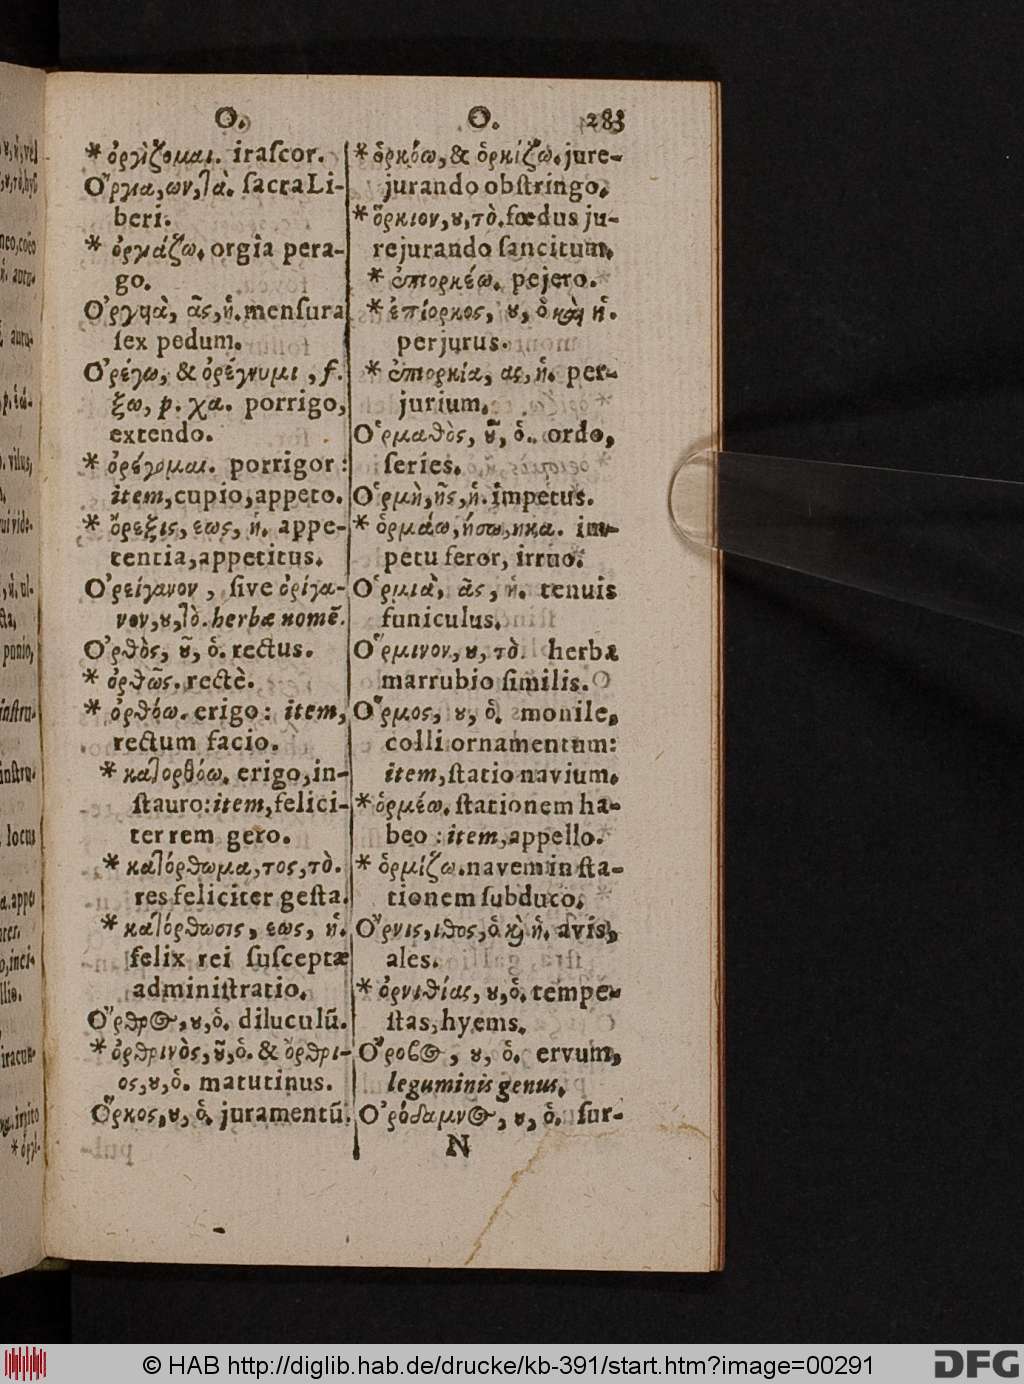 O.
* ὀργίζομαι. iraſcor.
Ὄργια,ων,τὰ. ſacra Li-
beri.
* ὀργιάζω. orgia pera-
go.
Ὀργυιὰ, ᾶς,ἡ. menſura
ſex pedum.
Ὀρέγω, & ὀρέγνυμι, f.
ξω, p. χα. porrigo,
extendo.
* ὀρέγομαι. porrigor:
item, cupio, appeto.
* ὄρεξις, εως, ἡ. appe-
tentia, appetitus.
Ὀρείγανον, ſive ὀρίγα-
νον,ȣ,τὸ. herbæ nomē.
Ὀρθὸς, ȣ͂, ὁ. rectus.
* ὀρθῶς. rectè.
* ὀρθόω. erigo: item,
rectum facio.
* κατορθόω. erigo, in-
ſtauro: item, felici-
ter rem gero.
* κατόρθωμα,τος,τὸ.
res feliciter geſta.
* κατόρθωσις, εως, ἡ.
felix rei ſuſceptæ
adminiſtratio.
Ὄρθρος,ȣ,ὁ. diluculū.
* ὀρθρινὸς,ȣ͂,ὁ. & ὄρθρι-
ος,ȣ,ὁ. matutinus.
Ὅρκος,ȣ,ὁ. juramentū.
O. 283
* ὁρκόω, & ὁρκίζω. jure-
jurando obſtringo.
* ὅρκιον,ȣ,τὸ. fœdus ju-
rejurando ſancitum.
* ἐπιορκέω. pejero.
* ἐπίορκος, ȣ, ὁ καὶ ἡ.
perjurus.
* ἐπιορκία, ας, ἡ. per-
jurium.
Ὁρμαθὸς, ȣ͂, ὁ. ordo,
ſeries.
Ὁρμὴ,ῆς,ἡ. impetus.
* ὁρμάω,ήσω,ηκα. im-
petu feror, irruo.
Ὁρμιὰ, ᾶς, ἡ. tenuis
funiculus.
Ὅρμινον,ȣ,τὸ. herba
marrubio ſimilis.
Ὅρμος, ȣ, ὁ. monile,
colli ornamentum:
item, ſtatio navium.
* ὁρμέω. ſtationem ha-
beo: item, appello.
* ὁρμίζω. navem in ſta-
tionem ſubduco.
Ὄρνις,ιθος,ὁ ϗ ἡ. avis,
ales.
* ὀρνιθίας, ȣ,ὁ. tempe-
ſtas, hyems.
Ὄροβος, ȣ, ὁ. ervum,
leguminis genus.
Ὀρόδαμνος, ȣ, ὁ. ſur-
N
© HAB http://diglib.hab.de/drucke/kb-391/start.htm?image=00291
DFG